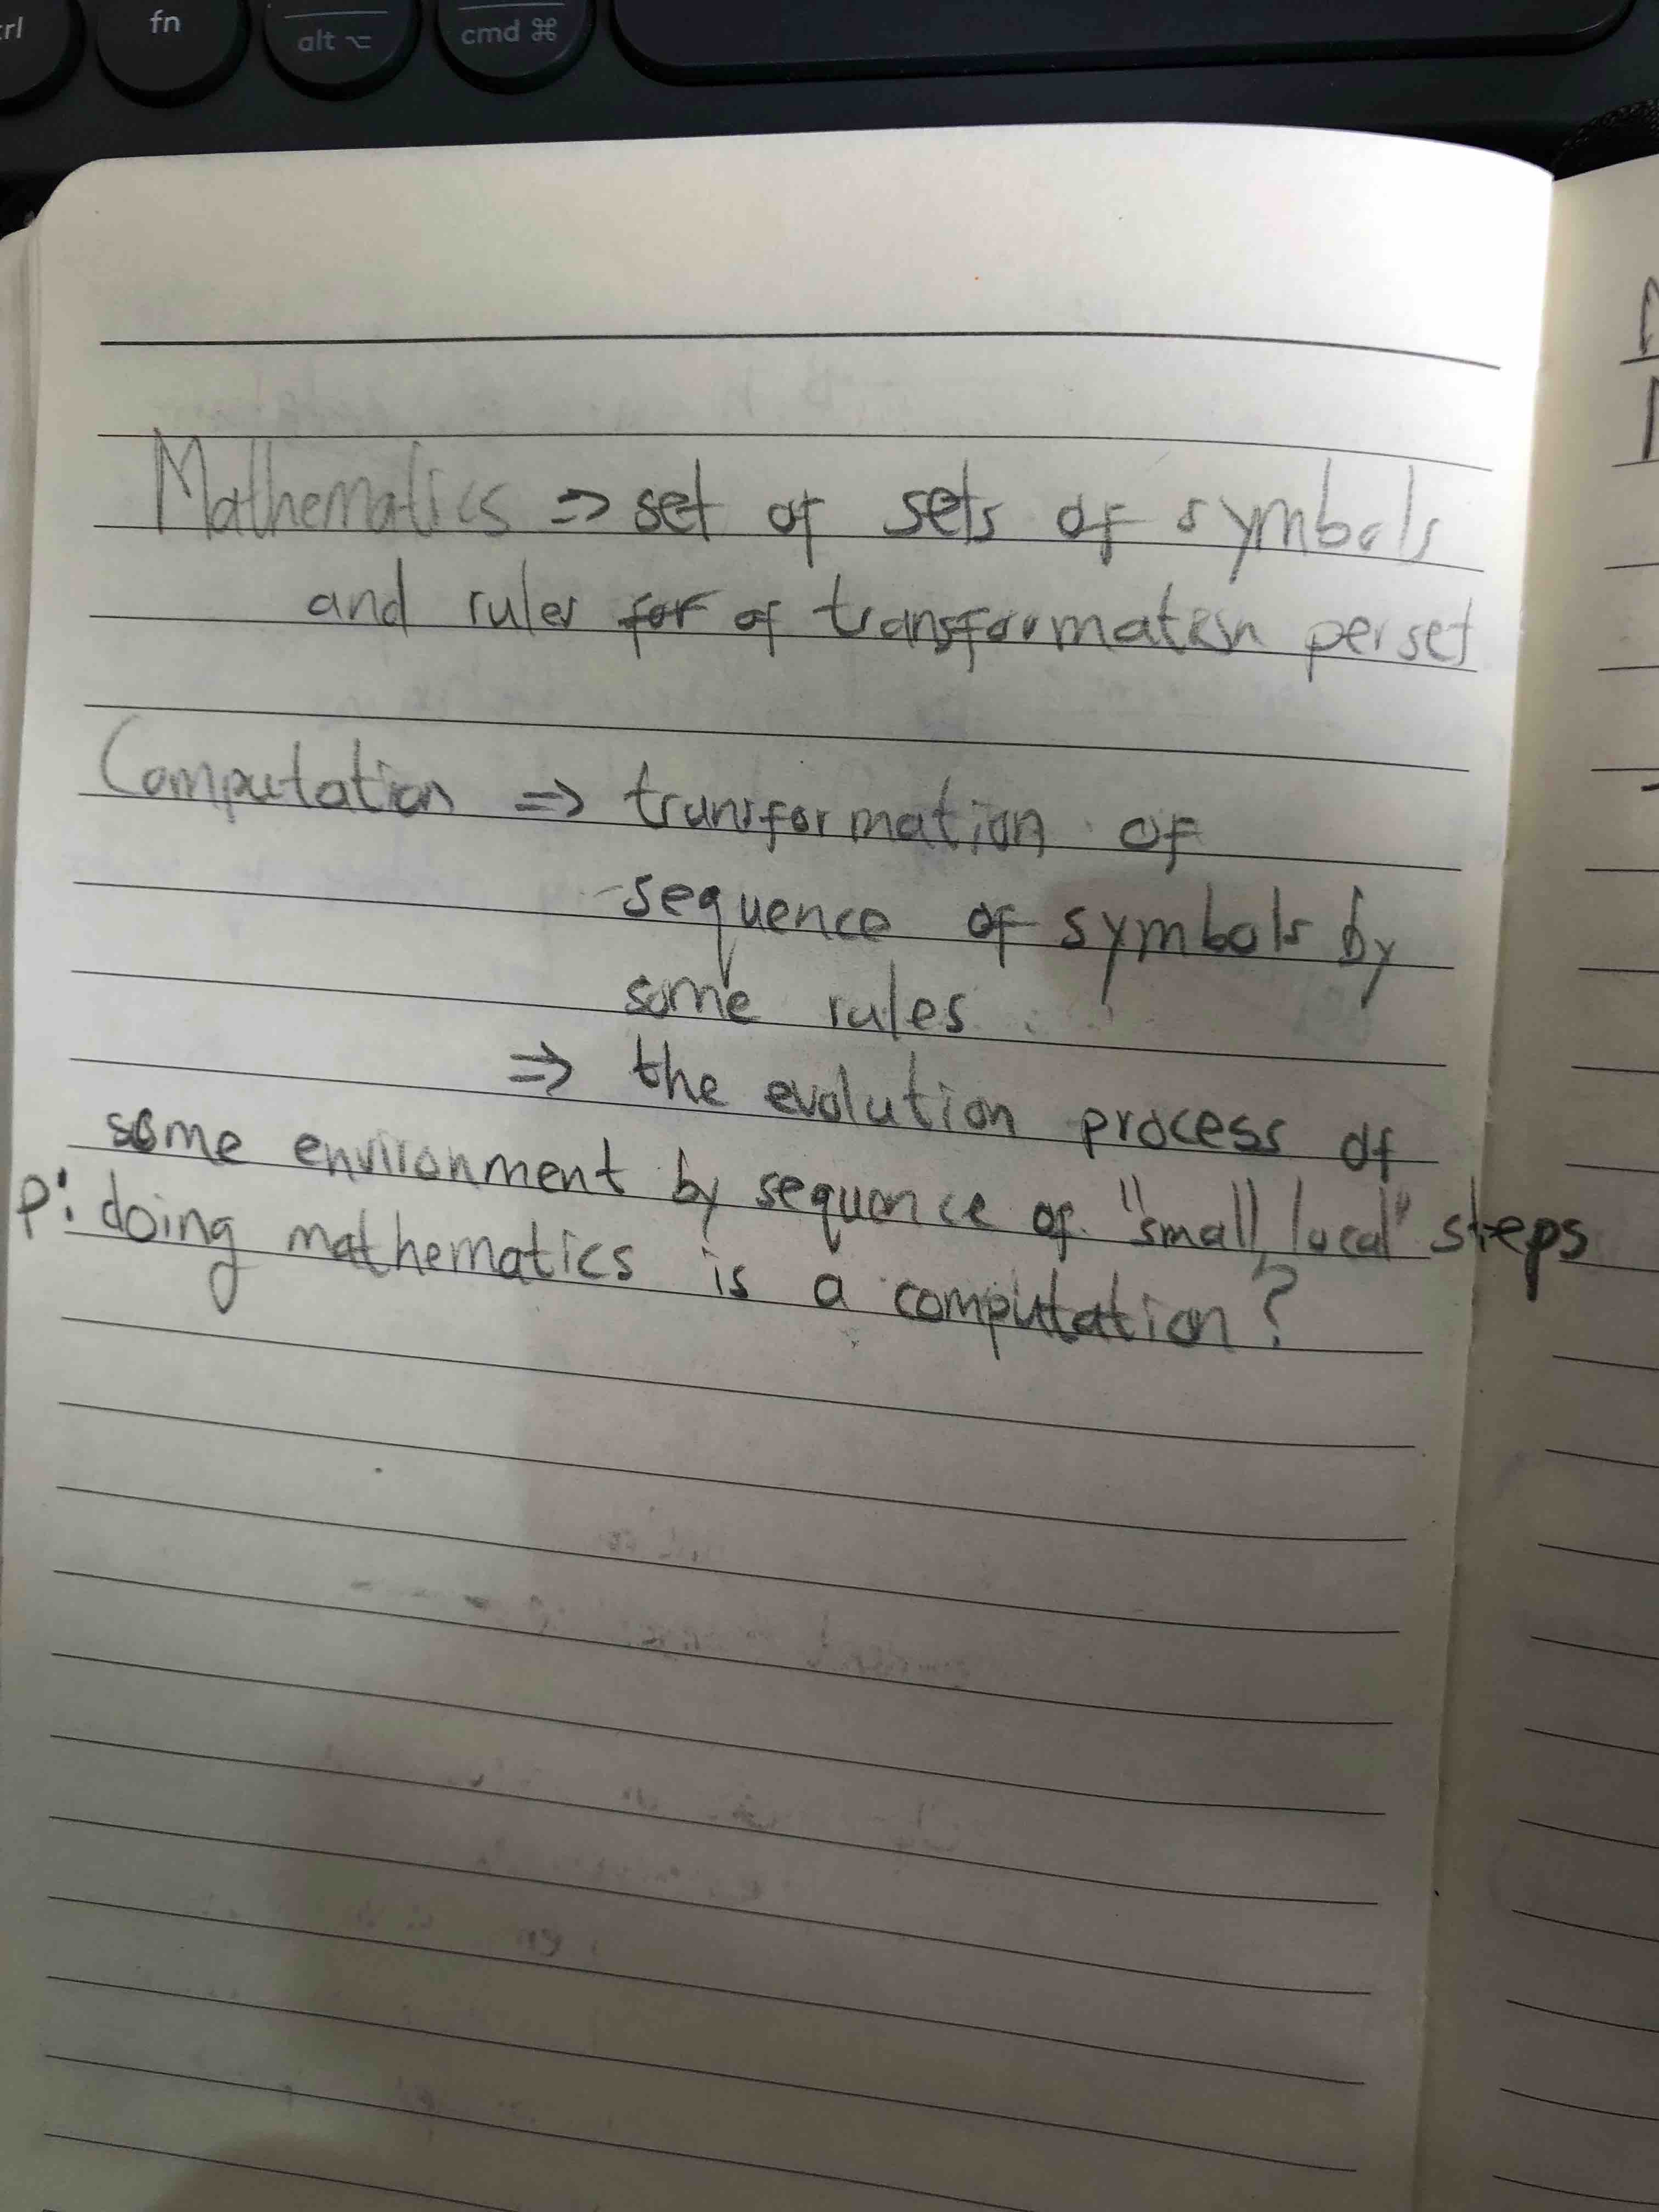 rl
fn
alt ⌥
cmd ⌘
Mathematics => set of sets of symbols
and rules for of transformation per set
Computation => transformation of
sequence of symbols by
some rules.
=> the evolution process of
some environment by sequence of "small, local" steps
P: doing mathematics is a computation?